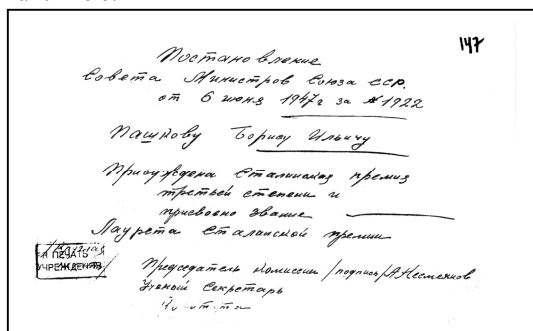 147
Постановление
Совета Министров Союза ССР.
от 6 июня 1947г за № 1922
Пашкову Борису Ильичу
Присуждена Сталинская премия
третьей степени и
присвоено звание
Лаурета Сталинской премии
ПЕЧАТЬ
УЧРЕЖДЕНИЯ
Председатель Комиссии /подпись/ А.Несмеянов
Ученый Секретарь